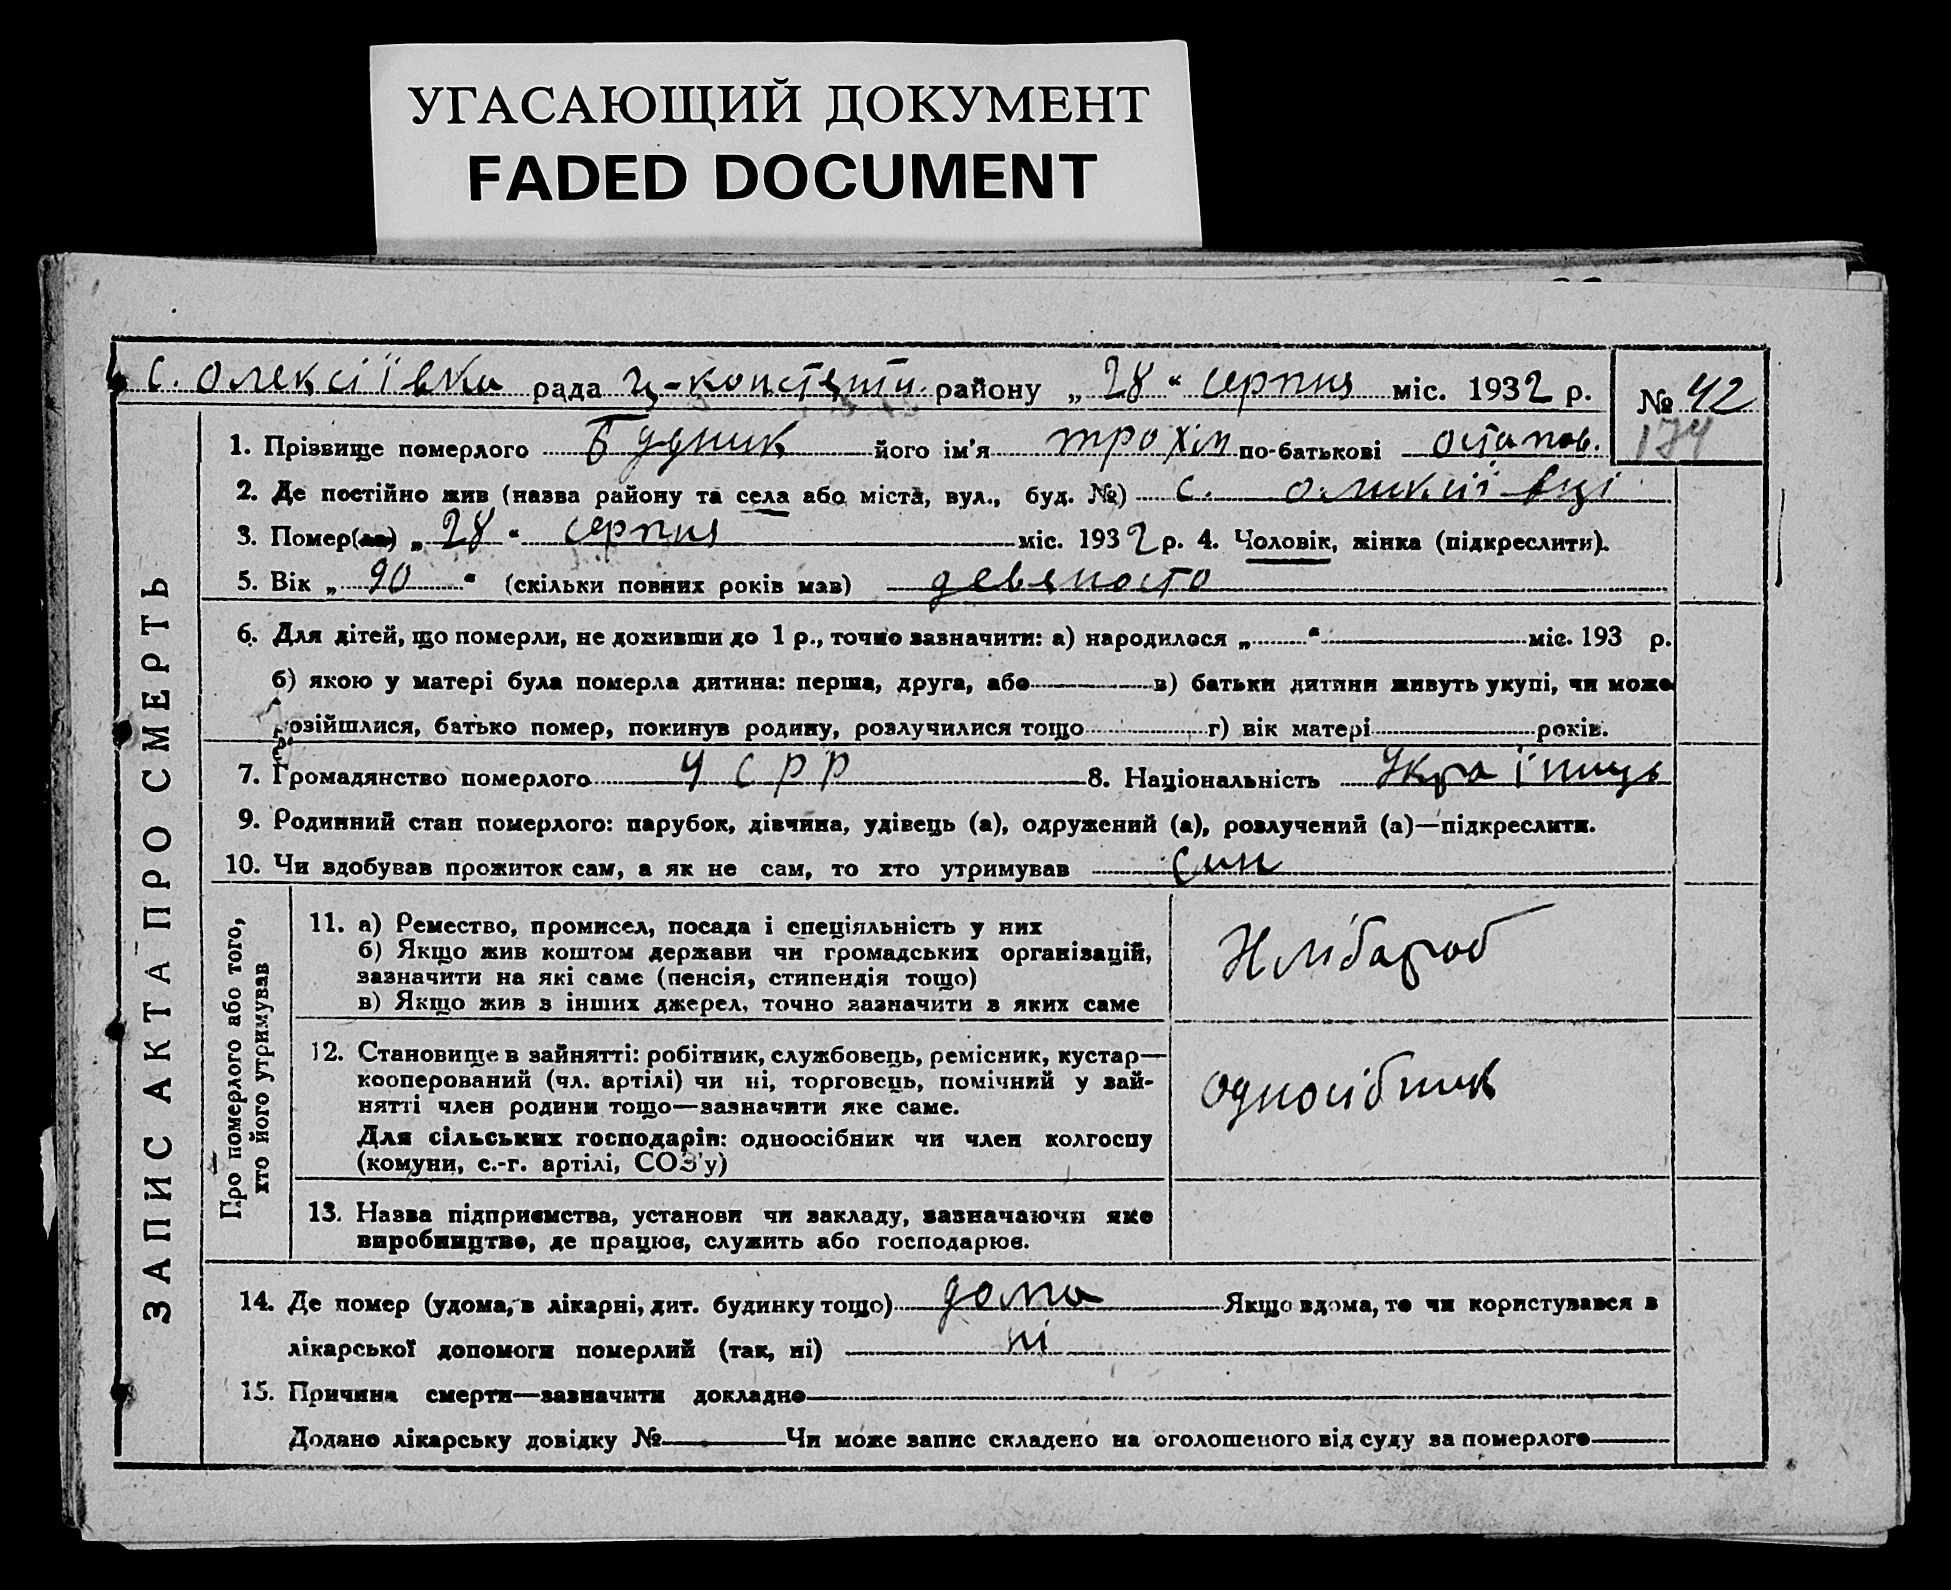 УГАСАЮЩИЙ ДОКУМЕНТ
FADED DOCUMENT
с. олексіївка рада району „28“ серпня міс. 1932 р.
№ 42
174
1. Прізвище померлого Будник його ім'я трохім по-батькові остапов.
2. Де постійно жив (назва району та села або міста, вул., буд. №) с. оликсіївці
3. Помер(ла) „28“ серпня міс. 1932 р. 4. Чоловік, жінка (підкреслити).
5. Вік „90“ (скільки повних років мав) девяносто
6. Для дітей, що померли, не доживши до 1 р., точно зазначити: а) народилося „ “ міс. 193 р.
б) якою у матері була померла дитина: перша, друга, або в) батьки дитини живуть укупі, чи може
розійшлися, батько помер, покинув родину, розлучилися тощо г) вік матері років.
7. Громадянство померлого УСРР 8. Національність Українець
9. Родинний стан померлого: парубок, дівчина, удівець (а), одружений (а), розлучений (а)—підкреслити.
10. Чи вдобував прожиток сам, а як не сам, то хто утримував син
ЗАПИС АКТА ПРО СМЕРТЬ
Про померлого або того,
хто його утримував
11. а) Ремество, промисел, посада і спеціяльність у них
б) Якщо жив коштом держави чи громадських організацій,
зазначити на які саме (пенсія, стипендія тощо)
в) Якщо жив з інших джерел, точно зазначити з яких саме
Хлібароб
12. Становище в зайнятті: робітник, службовець, ремісник, кустар—
кооперований (чл. артілі) чи ні, торговець, помічний у зай-
нятті член родини тощо—зазначити яке саме.
Для сільських господарів: одноосібник чи член колгоспу
(комуни, с.-г. артілі, СОЗ'у)
односібник
13. Назва підприємства, установи чи закладу, зазначаючи яке
виробництво, де працює, служить або господарює.
14. Де помер (удома, в лікарні, дит. будинку тощо) дома Якщо вдома, то чи користувався з
лікарської допомоги померлий (так, ні) ні
15. Причина смерти—зазначити докладно
Додано лікарську довідку № Чи може запис складено на оголошеного від суду за померлого